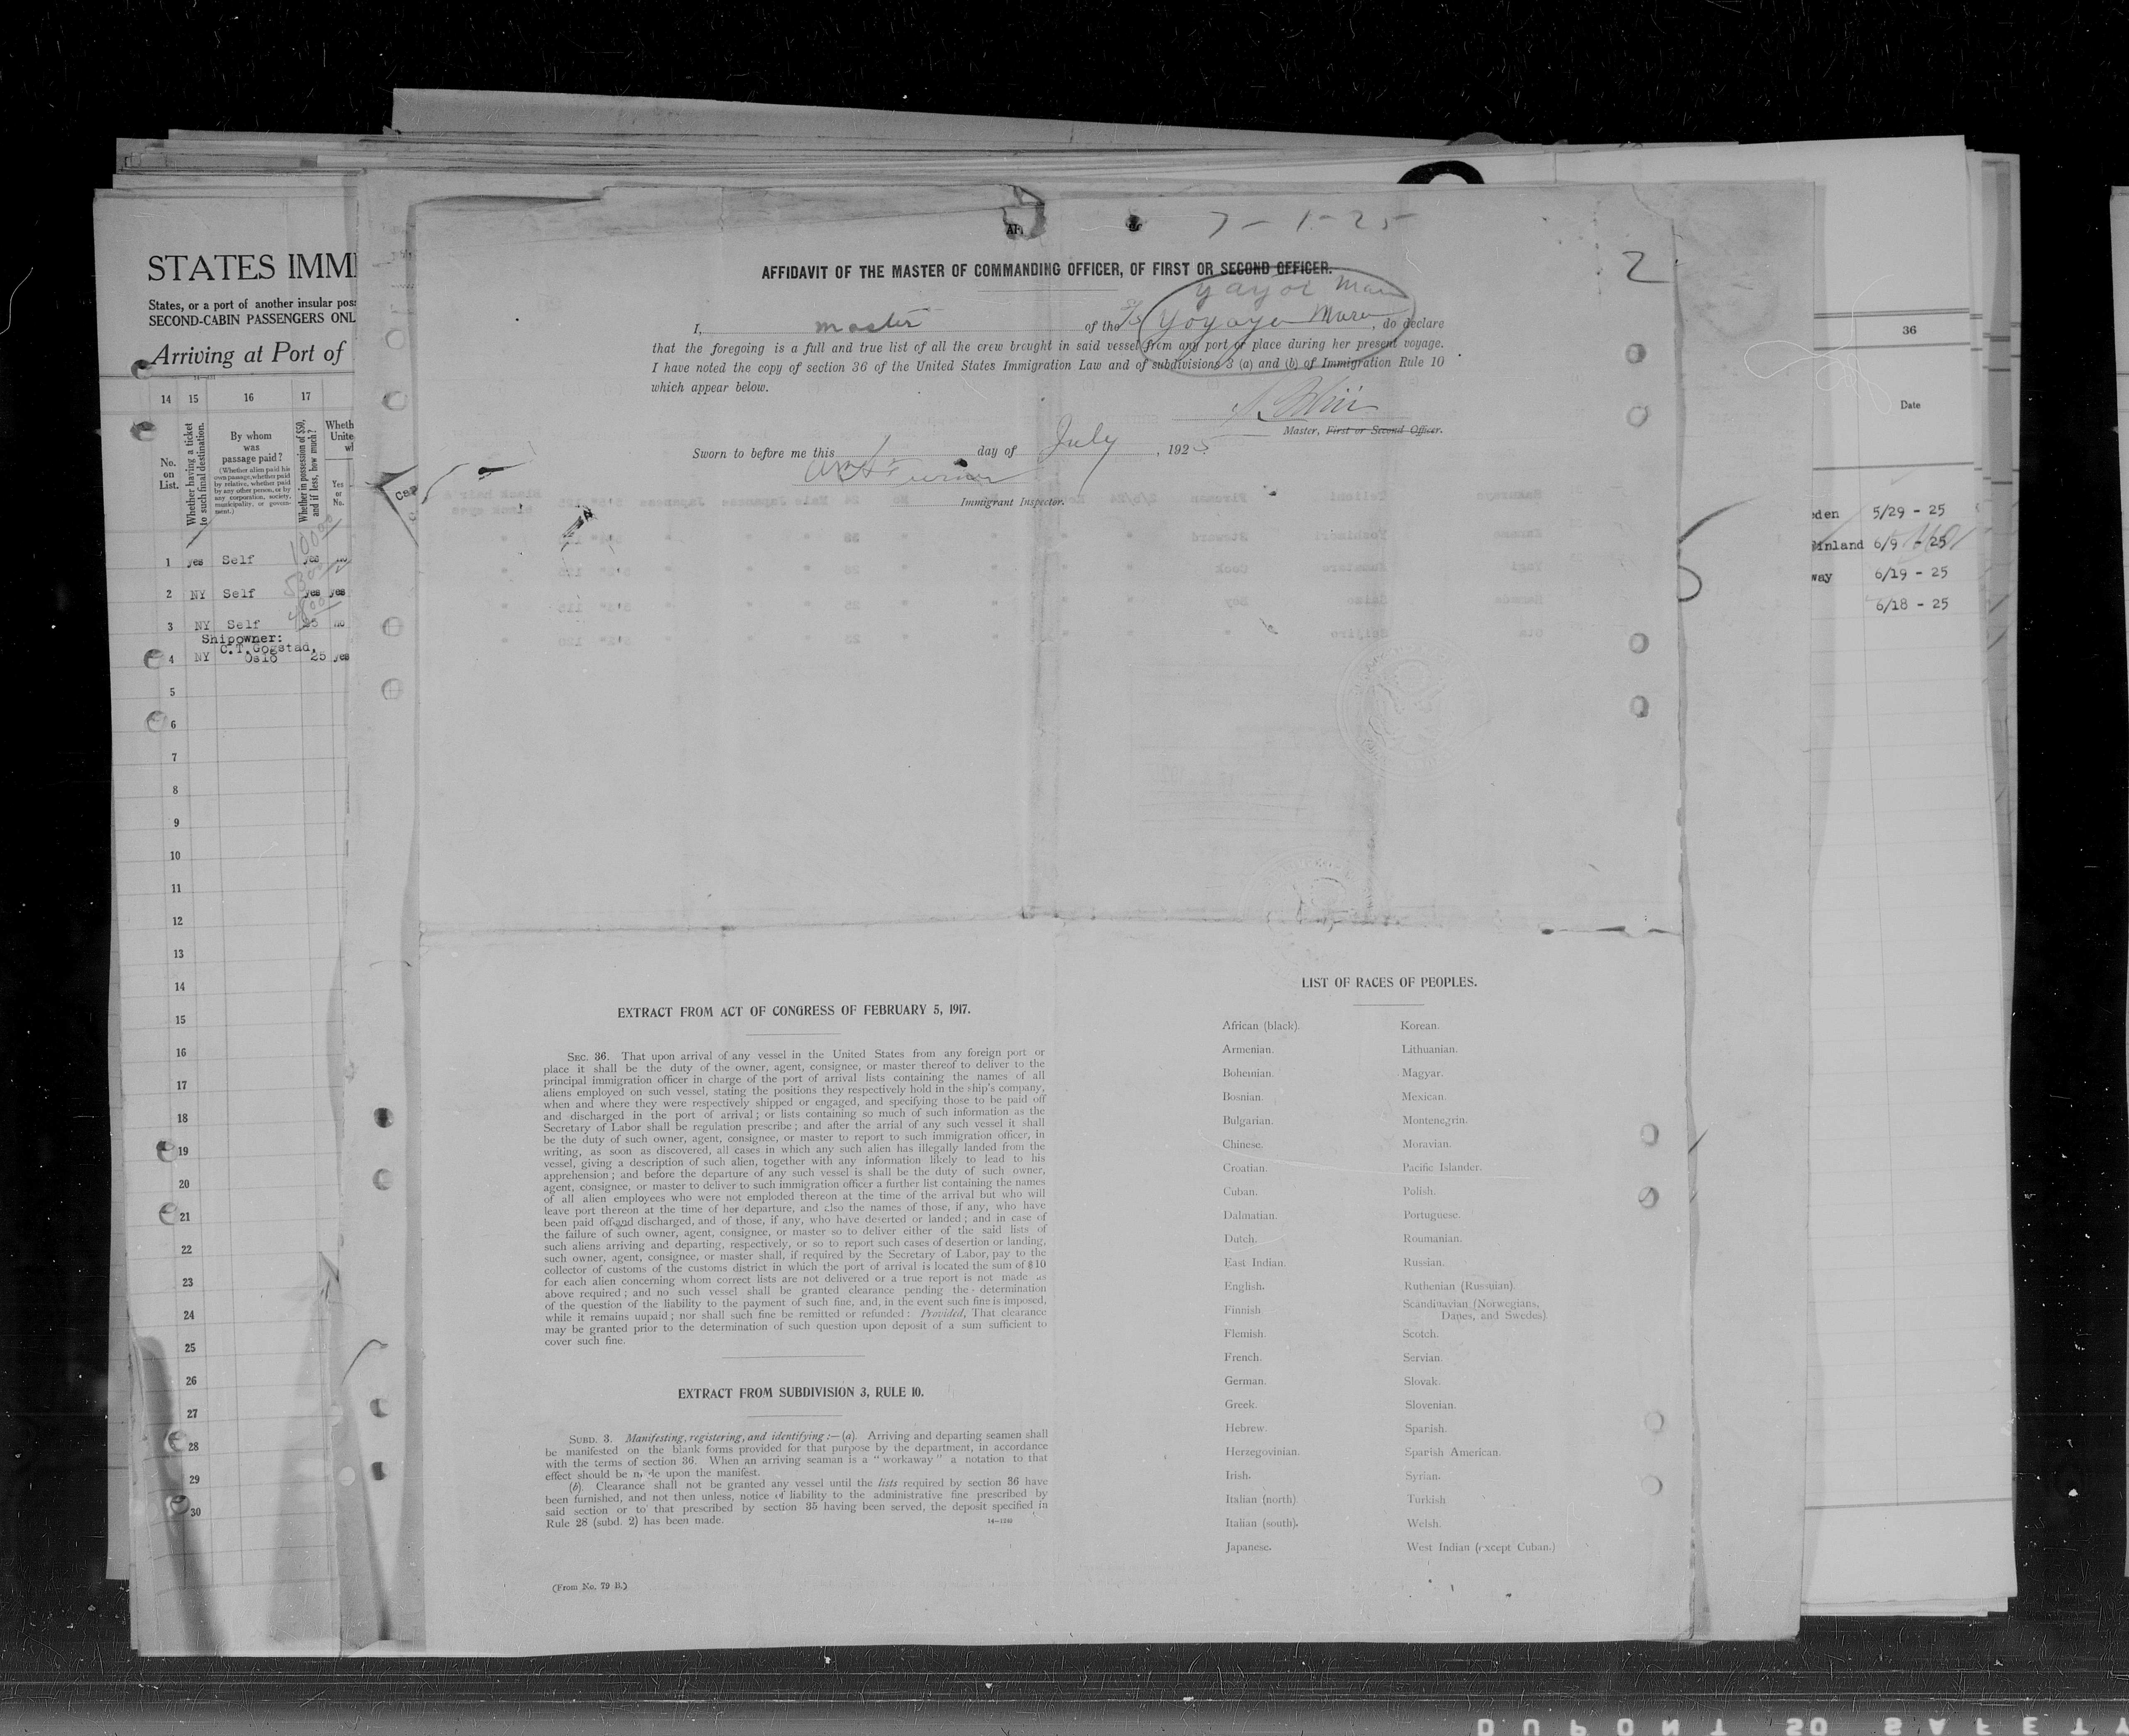 7-1-25
2
AFFIDAVIT OF THE MASTER OF COMMANDING OFFICER, OF FIRST OR SECOND OFFICER.
yayoi Maru
I, master of the S/S Yoyoye Maru, do declare
that the foregoing is a full and true list of all the crew brought in said vessel from any port or place during her present voyage.
I have noted the copy of section 36 of the United States Immigration Law and of subdivisions 3 (a) and (b) of Immigration Rule 10
which appear below.
Master, First or Second Officer.
Sworn to before me this 1 day of July, 1925
Immigrant Inspector.
EXTRACT FROM ACT OF CONGRESS OF FEBRUARY 5, 1917.
SEC. 36. That upon arrival of any vessel in the United States from any foreign port or
place it shall be the duty of the owner, agent, consignee, or master thereof to deliver to the
principal immigration officer in charge of the port of arrival lists containing the names of all
aliens employed on such vessel, stating the positions they respectively hold in the ship's company,
when and where they were respectively shipped or engaged, and specifying those to be paid off
and discharged in the port of arrival; or lists containing so much of such information as the
Secretary of Labor shall be regulation prescribe; and after the arrial of any such vessel it shall
be the duty of such owner, agent, consignee, or master to report to such immigration officer, in
writing, as soon as discovered, all cases in which any such alien has illegally landed from the
vessel, giving a description of such alien, together with any information likely to lead to his
apprehension; and before the departure of any such vessel is shall be the duty of such owner,
agent, consignee, or master to deliver to such immigration officer a further list containing the names
of all alien employees who were not emploded thereon at the time of the arrival but who will
leave port thereon at the time of her departure, and also the names of those, if any, who have
been paid off and discharged, and of those, if any, who have deserted or landed; and in case of
the failure of such owner, agent, consignee, or master so to deliver either of the said lists of
such aliens arriving and departing, respectively, or so to report such cases of desertion or landing,
such owner, agent, consignee, or master shall, if required by the Secretary of Labor, pay to the
collector of customs of the customs district in which the port of arrival is located the sum of $10
for each alien concerning whom correct lists are not delivered or a true report is not made as
above required; and no such vessel shall be granted clearance pending the determination
of the question of the liability to the payment of such fine, and, in the event such fine is imposed,
while it remains uupaid; nor shall such fine be remitted or refunded: Provided, That clearance
may be granted prior to the determination of such question upon deposit of a sum sufficient to
cover such fine.
EXTRACT FROM SUBDIVISION 3, RULE 10.
SUBD. 3. Manifesting, registering, and identifying:—(a). Arriving and departing seamen shall
be manifested on the blank forms provided for that purpose by the department, in accordance
with the terms of section 36. When an arriving seaman is a "workaway" a notation to that
effect should be made upon the manifest.
(b). Clearance shall not be granted any vessel until the lists required by section 36 have
been furnished, and not then unless, notice of liability to the administrative fine prescribed by
said section or to that prescribed by section 35 having been served, the deposit specified in
Rule 28 (subd. 2) has been made.
(From No. 79 B.)
LIST OF RACES OF PEOPLES.
African (black). Korean.
Armenian. Lithuanian.
Bohemian. Magyar.
Bosnian. Mexican.
Bulgarian. Montenegrin.
Chinese. Moravian.
Croatian. Pacific Islander.
Cuban. Polish.
Dalmatian. Portuguese.
Dutch. Roumanian.
East Indian. Russian.
English. Ruthenian (Russuian).
Finnish Scandinavian (Norwegians,
Danes, and Swedes)
Flemish. Scotch.
French. Servian.
German. Slovak.
Greek. Slovenian.
Hebrew. Sparish.
Herzegovinian. Sparish American.
Irish. Syrian.
Italian (north). Turkish
Italian (south). Welsh.
Japanese. West Indian (except Cuban.)
STATES IMMI
States, or a port of another insular pos
SECOND-CABIN PASSENGERS ONL
Arriving at Port of
14 15 16 17
No. on List.
Whether having a ticket to such final destination.
By whom was passage paid?
(Whether alien paid his own passage, whether paid by relative, whether paid by any other person, or by any corporation, society, municipality, or government.)
Whether in possession of $50, and if less, how much?
Wheth
Unite
Yes or No.
1 yes Self yes no
2 NY Self yes yes
3 NY Self 25 no
Shipowner:
C.T.Gogstad,
4 NY Oslo 25 yes
5
6
7
8
9
10
11
12
13
14
15
16
17
18
19
20
21
22
23
24
25
26
27
28
29
30
36
Date
eden 5/29 - 25
inland 6/9 - 25
way 6/19 - 25
6/18 - 25
DUPONT SO SAFETY